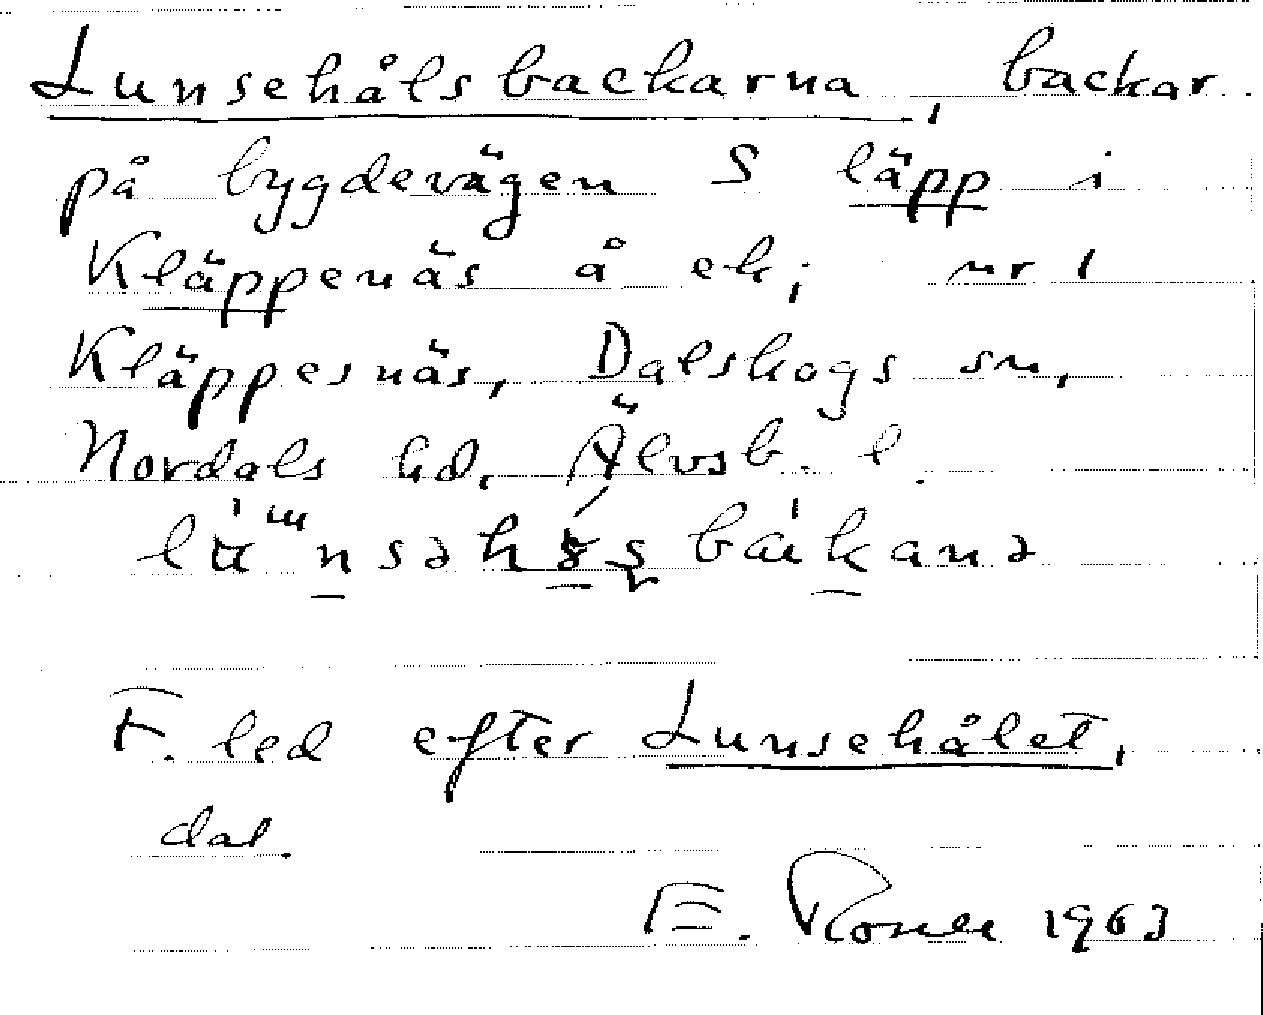 Lunsehålsbackarna, backar
på bygdevägen S läpp i
Kläppenäs å ek; nr 1
Kläppesnäs, Dalskogs sn,
Nordals hd, Älvsb. l.
F. led efter Lunsehålet,
dal.
E. 1963